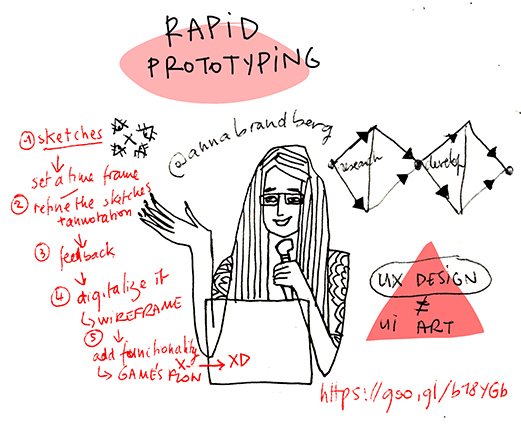 RAPID
PROTOTYPING
@annabrandberg
① sketches
set a time frame
② refine the sketches
+ annotation
③ feedback
④ digitalize it
↳ WIREFRAME
⑤
add functionality
↳ GAME'S FLOW X → XD
research
develop
UX DESIGN
≠
ui ART
https://goo.gl/b18YGb